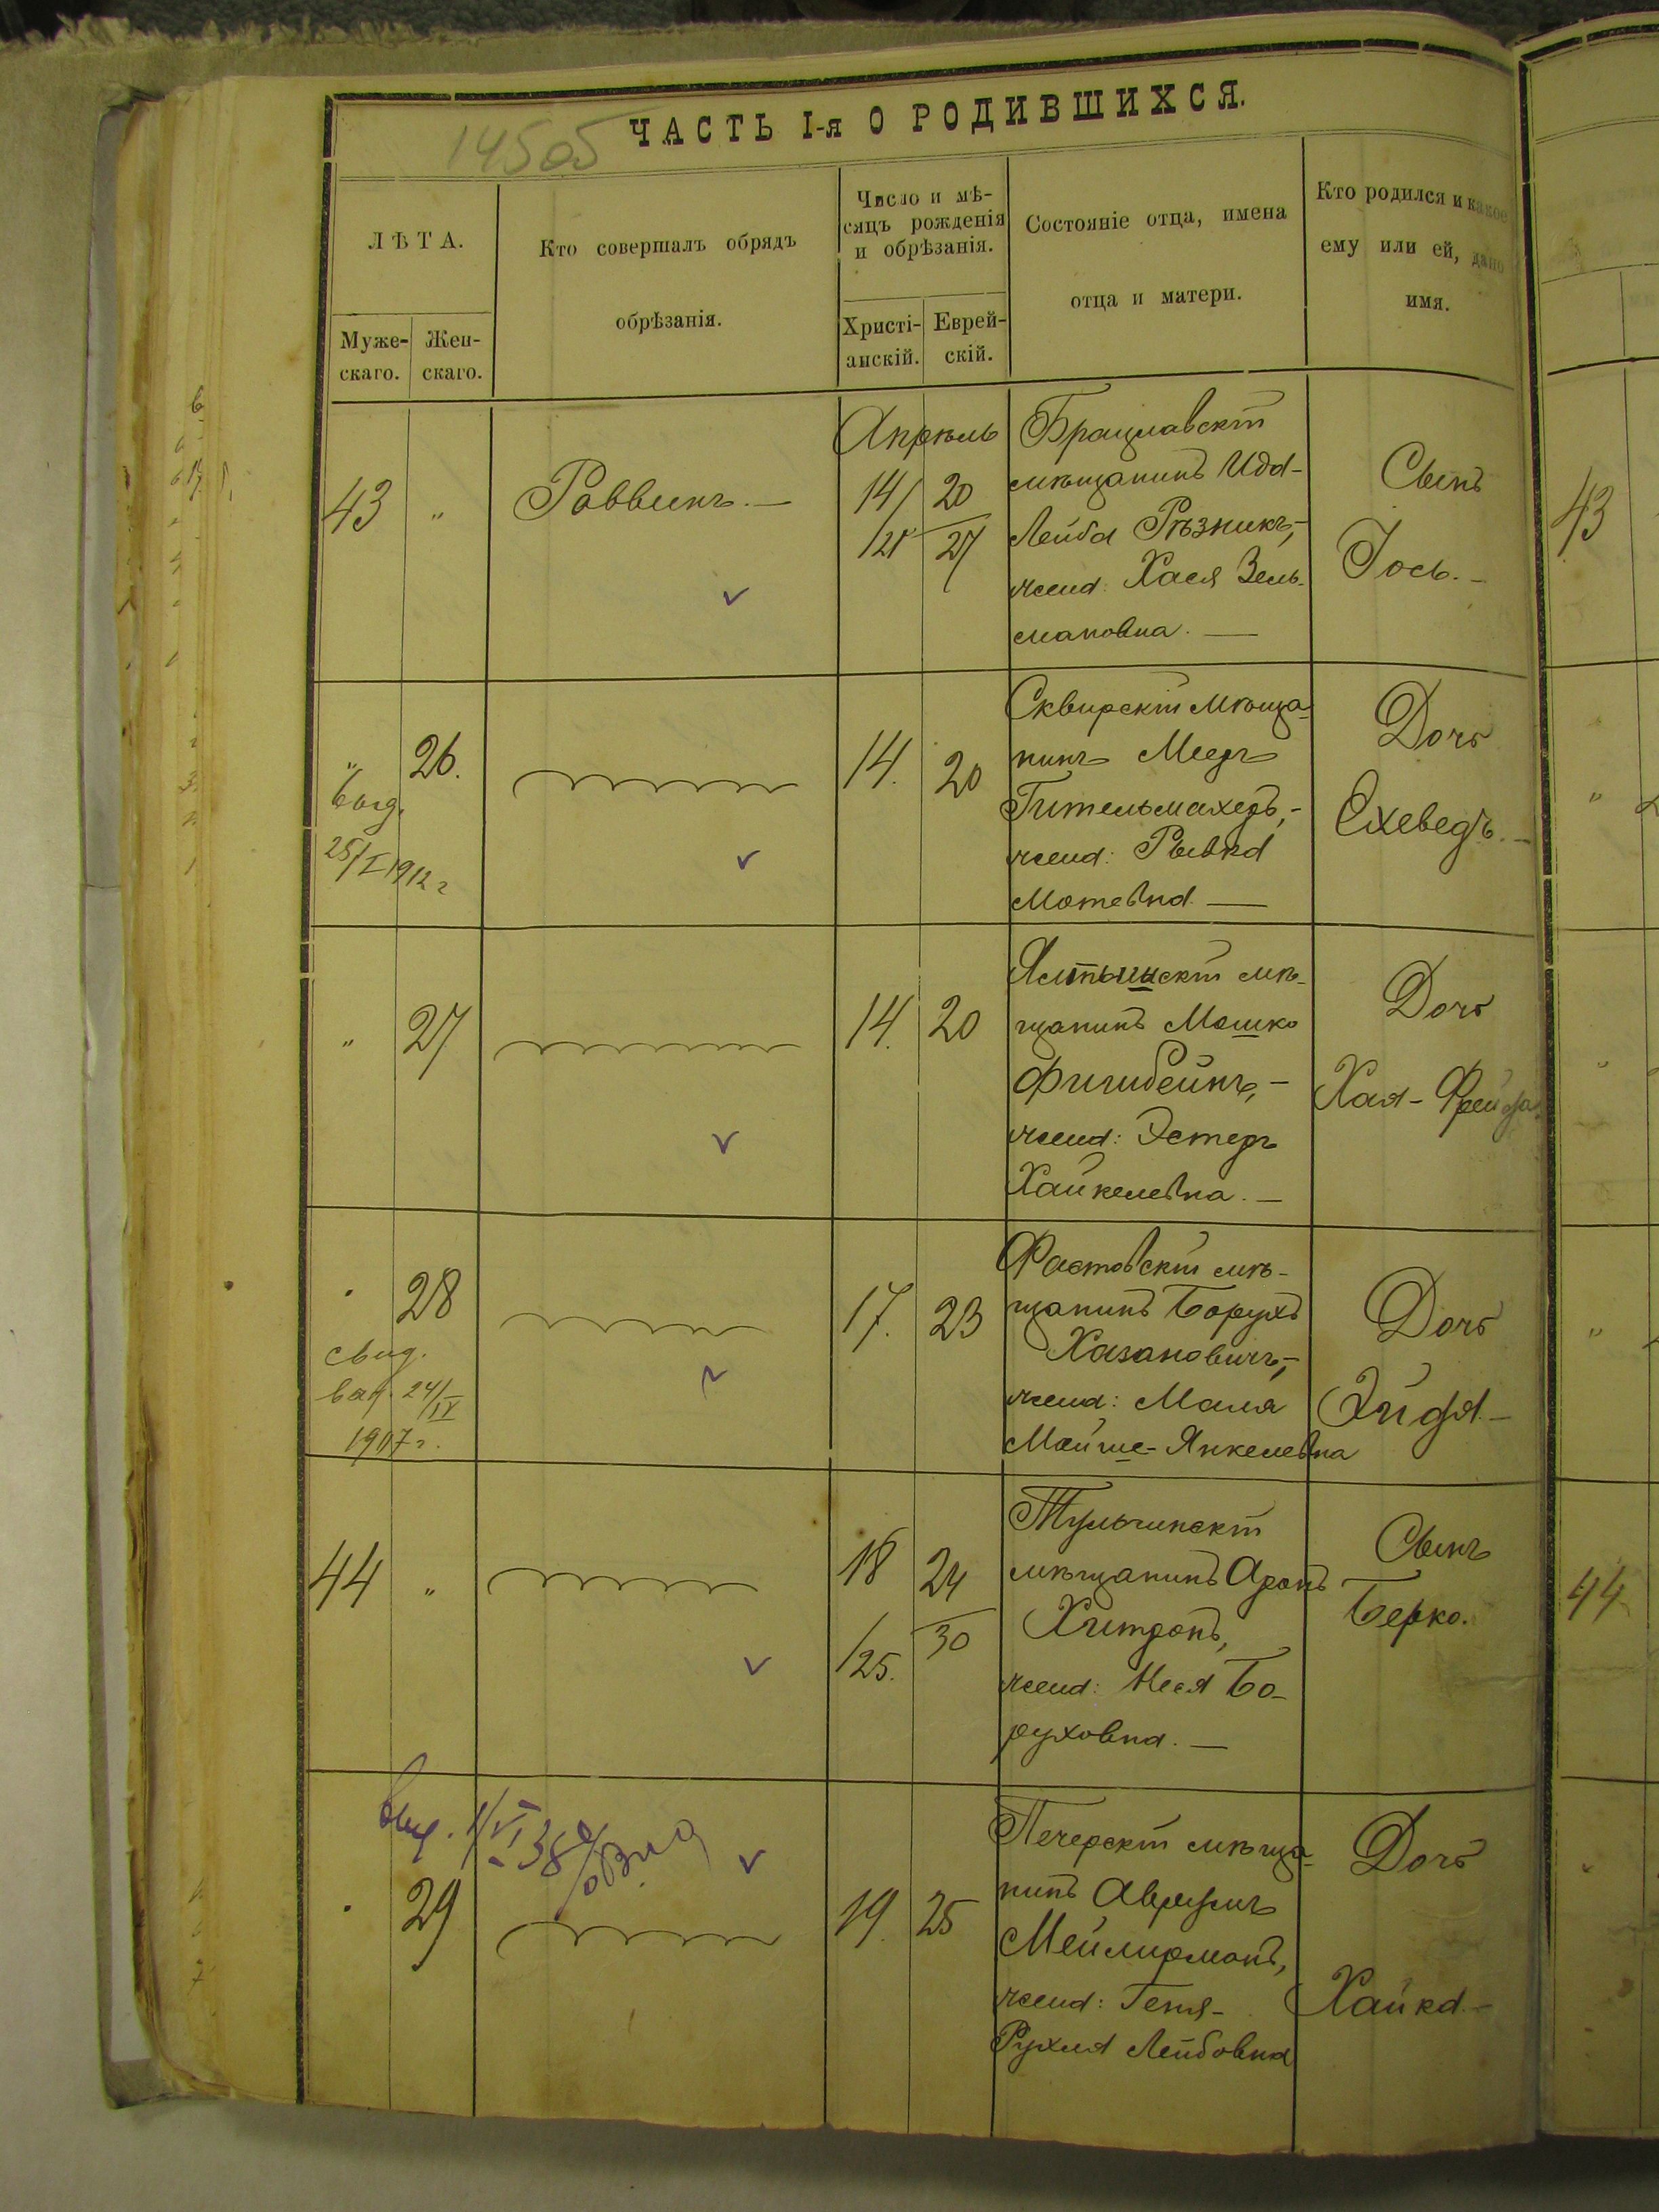 145об
ЧАСТЬ I-я О РОДИВШИХСЯ.
ЛѢТА.
Муже-
скаго.
Жен-
скаго.
Кто совершалъ обрядъ
обрѣзанія.
Число и мѣ-
сяцъ рожденія
и обрѣзанія.
Христі-
анскій.
Еврей-
скій.
Состояніе отца, имена
отца и матери.
Кто родился и какое
ему или ей, дано
имя.
43 " Раввинъ. —
Апрѣль
14/ 20
/21 27
Брацлавскій
мѣщанинъ Ида-
Лейба Рѣзникъ,-
жена: Хася Зель-
мановна. —
Сынъ
Іось. -
43
" 26.
выд.
25/I 1912 г
14. 20
Сквирскій мѣща-
нинъ Мееръ
Гительмахеръ,-
жена: Рывка
Мотевна. —
Дочь
Ехеведъ. -
"
" 27
14. 20
Ялтынскій мѣ-
щанинъ Мошко
Фишбейнъ, -
жена: Эстеръ
Хайкелевна. -
Дочь
Хая-Фрейда.
28
свид.
выд. 24/IV
1907 г.
17. 23
Фастовскій мѣ-
щанинъ Борухъ
Хазановичъ,-
жена: Маля
Мойше-Янкелевна
Дочь
Эйдя. -
"
44 "
18 24
/25. 30
Тульчинскій
мѣщанинъ Аронъ
Хитронъ,
жена: Нися Бо-
руховна. —
Сынъ
Берко.
44
выд. 1/VI 38
29
19. 25
Печерскій мѣща-
нинъ Аврумъ
Мейлирманъ,
жена: Геня-
Рухля Лейбовна
Дочь
Хайка. -